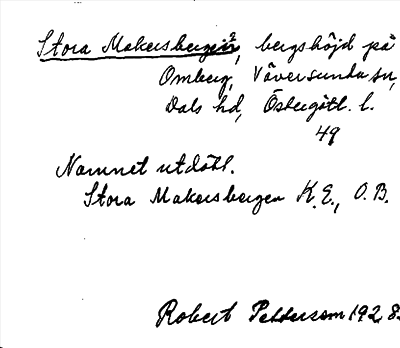 Stora Makersbergen, bergshöjd på
Omberg, Väversunda sn,
Dals hd, Östergötl. l.
49
Namnet utdött.
Stora Makersbergen K.E., O.B.
Robert Pettersson 1928